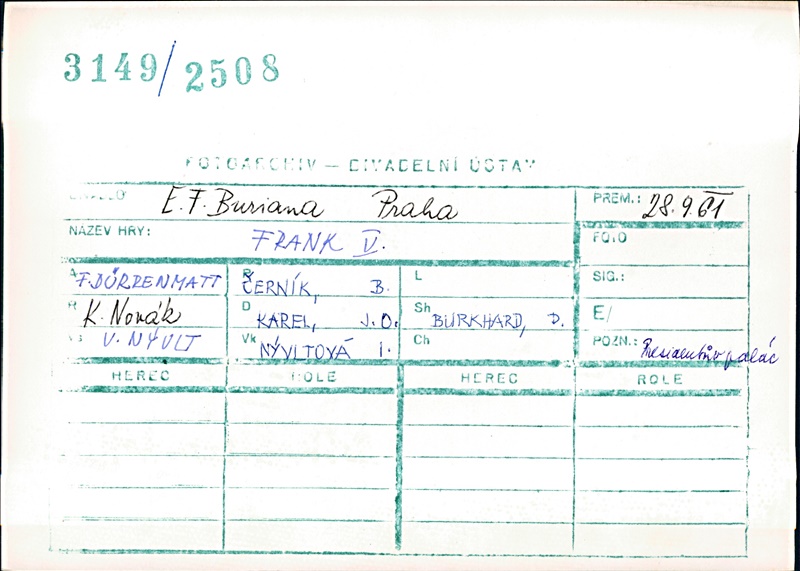 3149/2508
FOTOARCHIV — DIVADELNÍ ÚSTAV
E. F. Buriana Praha PREM.: 28.9.61
NÁZEV HRY: FRANK V. FOTO
A F. DÜRRENMATT P ČERNÍK, B. L SIG.:
R K. Novák D KAREL, J. O. Sh BURKHARD, P. E/
V. NÝVLT Vk NÝVLTOVÁ I. Ch POZN.: Presidentův palác
HEREC ROLE HEREC ROLE